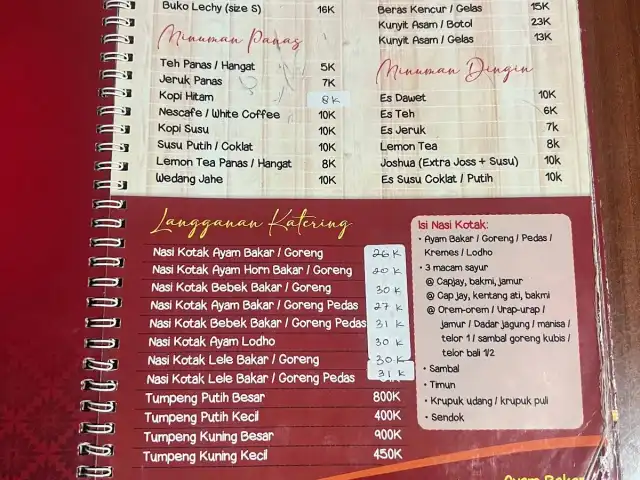 Buko Lechy (size S) 16K
Minuman Panas
Teh Panas / Hangat 5K
Jeruk Panas 7K
Kopi Hitam 8K
Nescafe / White Coffee 10K
Kopi Susu 10K
Susu Putih / Coklat 10K
Lemon Tea Panas / Hangat 8K
Wedang Jahe 10K
Beras Kencur / Gelas 15K
Kunyit Asam / Botol 23K
Kunyit Asam / Gelas 13K
Minuman Dingin
Es Dawet 10K
Es Teh 6K
Es Jeruk 7k
Lemon Tea 8k
Joshua (Extra Joss + Susu) 10k
Es Susu Coklat / Putih 10k
Langganan Katering
Nasi Kotak Ayam Bakar / Goreng 26 K
Nasi Kotak Ayam Horn Bakar / Goreng 20 K
Nasi Kotak Bebek Bakar / Goreng 30 K
Nasi Kotak Ayam Bakar / Goreng Pedas 27 K
Nasi Kotak Bebek Bakar / Goreng Pedas 31 K
Nasi Kotak Ayam Lodho 30 K
Nasi Kotak Lele Bakar / Goreng 30 K
Nasi Kotak Lele Bakar / Goreng Pedas 31 K
Tumpeng Putih Besar 800K
Tumpeng Putih Kecil 400K
Tumpeng Kuning Besar 900K
Tumpeng Kuning Kecil 450K
Isi Nasi Kotak:
• Ayam Bakar / Goreng / Pedas /
Kremes / Lodho
• 3 macam sayur
@ Capjay, bakmi, jamur
@ Cap jay, kentang ati, bakmi
@ Orem-orem / Urap-urap /
jamur / Dadar jagung / manisa /
telor 1 / sambal goreng kubis /
telor bali 1/2
• Sambal
• Timun
• Krupuk udang / krupuk puli
• Sendok
Ayam Bakar